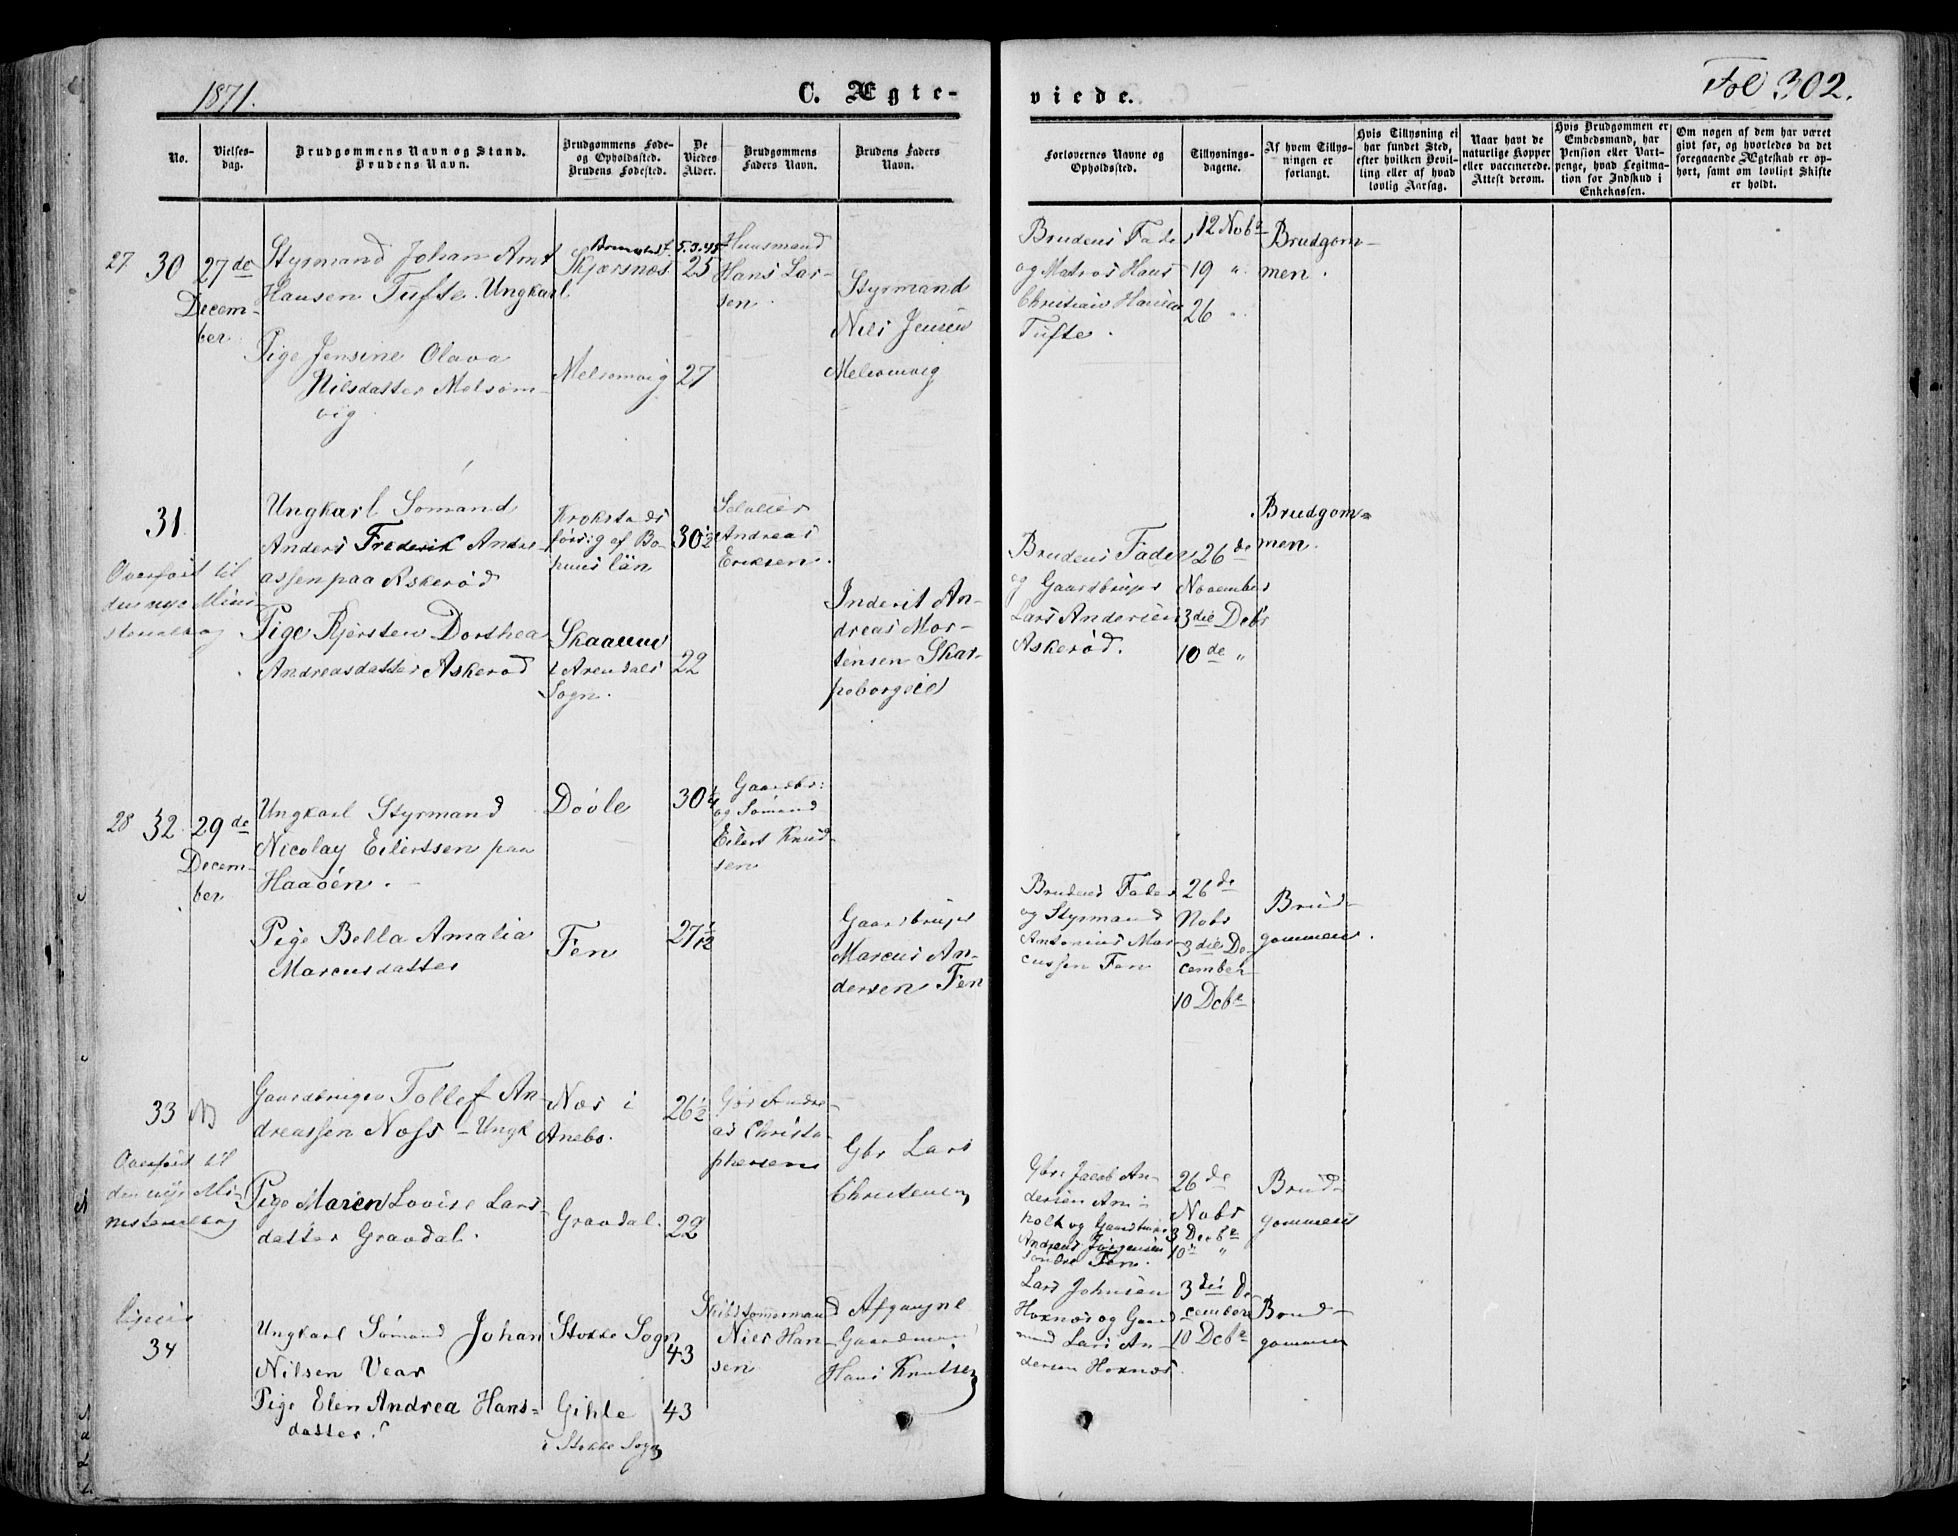 1871.
C. Ægte-
viede.
Fol 302.
No.
Vielses-
dag.
Brudgommens Navn og Stand.
Brudens Navn.
Brudgommens Føde-
og Opholdssted.
Brudens Fødested.
De
Viedes
Alder.
Brudgommens
Faders Navn.
Brudens Faders
Navn.
Forlovernes Navne og
Opholdssted.
Tillysnings-
dagene.
Af hvem Tillys-
ningen er
forlangt.
Hvis Tillysning ei
har fundet Sted,
efter hvilken Bevil-
ling eller af hvad
lovlig Aarsag.
Naar havt de
naturlige Kopper
eller vaccinerede.
Attest derom.
Hvis Brudgommen er
Embedsmand, har
Pension eller Vart-
penge, hvad Legitima-
tion for Indskud i
Enkekassen.
Om nogen af dem har været
gift før, og hvorledes da det
foregaaende Ægteskab er op-
hørt, samt om lovligt Skifte
er holdt.
27 30
27de
Decem-
ber
Styrmand Johan Arnt
Hansen Tufte. Ungkarl
Pige Jensine Olava
Nilsdatter Melsom-
vig
Skjærsnæs
Melsomvig
5.3.45
25
27
Huusmand
Hans Lar-
sen
Styrmand
Nils Jensen
Melsomvig
Brudens Fader
og Matros Hans
Christian Hansen
Tufte.
12 Nobr
19 "
26 "
Brudgom-
men.
31
Overført til
den nye Mini-
sterialbog
Ungkarl Sømand
Anders Frederik Andre-
assen paa Askerød
Pige Kjersten Dorthea
Andreasdatter Askerød
Krokstads
förs:g af Bo-
huus län
Skaanum
i Arendals
Sogn.
30 1/2
22
Andreas
Eriksen.
Inderst An-
dreas Mor-
tensen Skar-
peborgeie
Brudens Fader
og Gaardbruger
Lars Andersen
Askerød.
26de
November
3die Debr
10de "
Brudgom-
men.
28 32
29de
Decem-
ber
Ungkarl Styrmand
Nicolay Eilertsen paa
Haaöen.
Pige Bella Amalia
Marcusdatter
Dövle
Fen
30 1/4
27 1/12
Gaardbr:
og Sømand
Eilert Knud-
sen
Gaardbruger
Marcus An-
dersen Fen
Brudens Fader
og Styrmand
Antonius Mar-
cussen Fen
26de
Nobr
3die De-
cember
10 Debr
Brud-
gommen.
33
Overført til
den nye Mi-
nisterialbog
Gaardbruger Tollef An-
dreassen Næss - Ungk
Pige Maren Lovise Lars-
datter Gravdal.
Næs i
Anebo.
Gravdal.
26 1/2
22
Gbr Andre-
as Christo-
phersen
Gbr Lars
Christensen
Gbr: Jacob An-
dersen Am-
holt og Gaardbruger
Andreas Jörgensen
söndre Fen.
26de
Nobr
3 Decbr
10 "
Brud-
gommen
ligesaa
34
Ungkarl Sømand Johan
Nilsen Vear
Pige Elen Andrea Hans-
datter.
Stokke Sogn
Gihle
i Stokke Sogn
43
43
Skibstømmermand
Niels Han-
sen
Afgangne
Gaardmand
Hans Knutsen
Lars Johnsen
Hoxnæs og Gaard-
mand Lars An-
dersen Hoxnæs.
3die De-
cember
10 Debr
Brud-
gommen